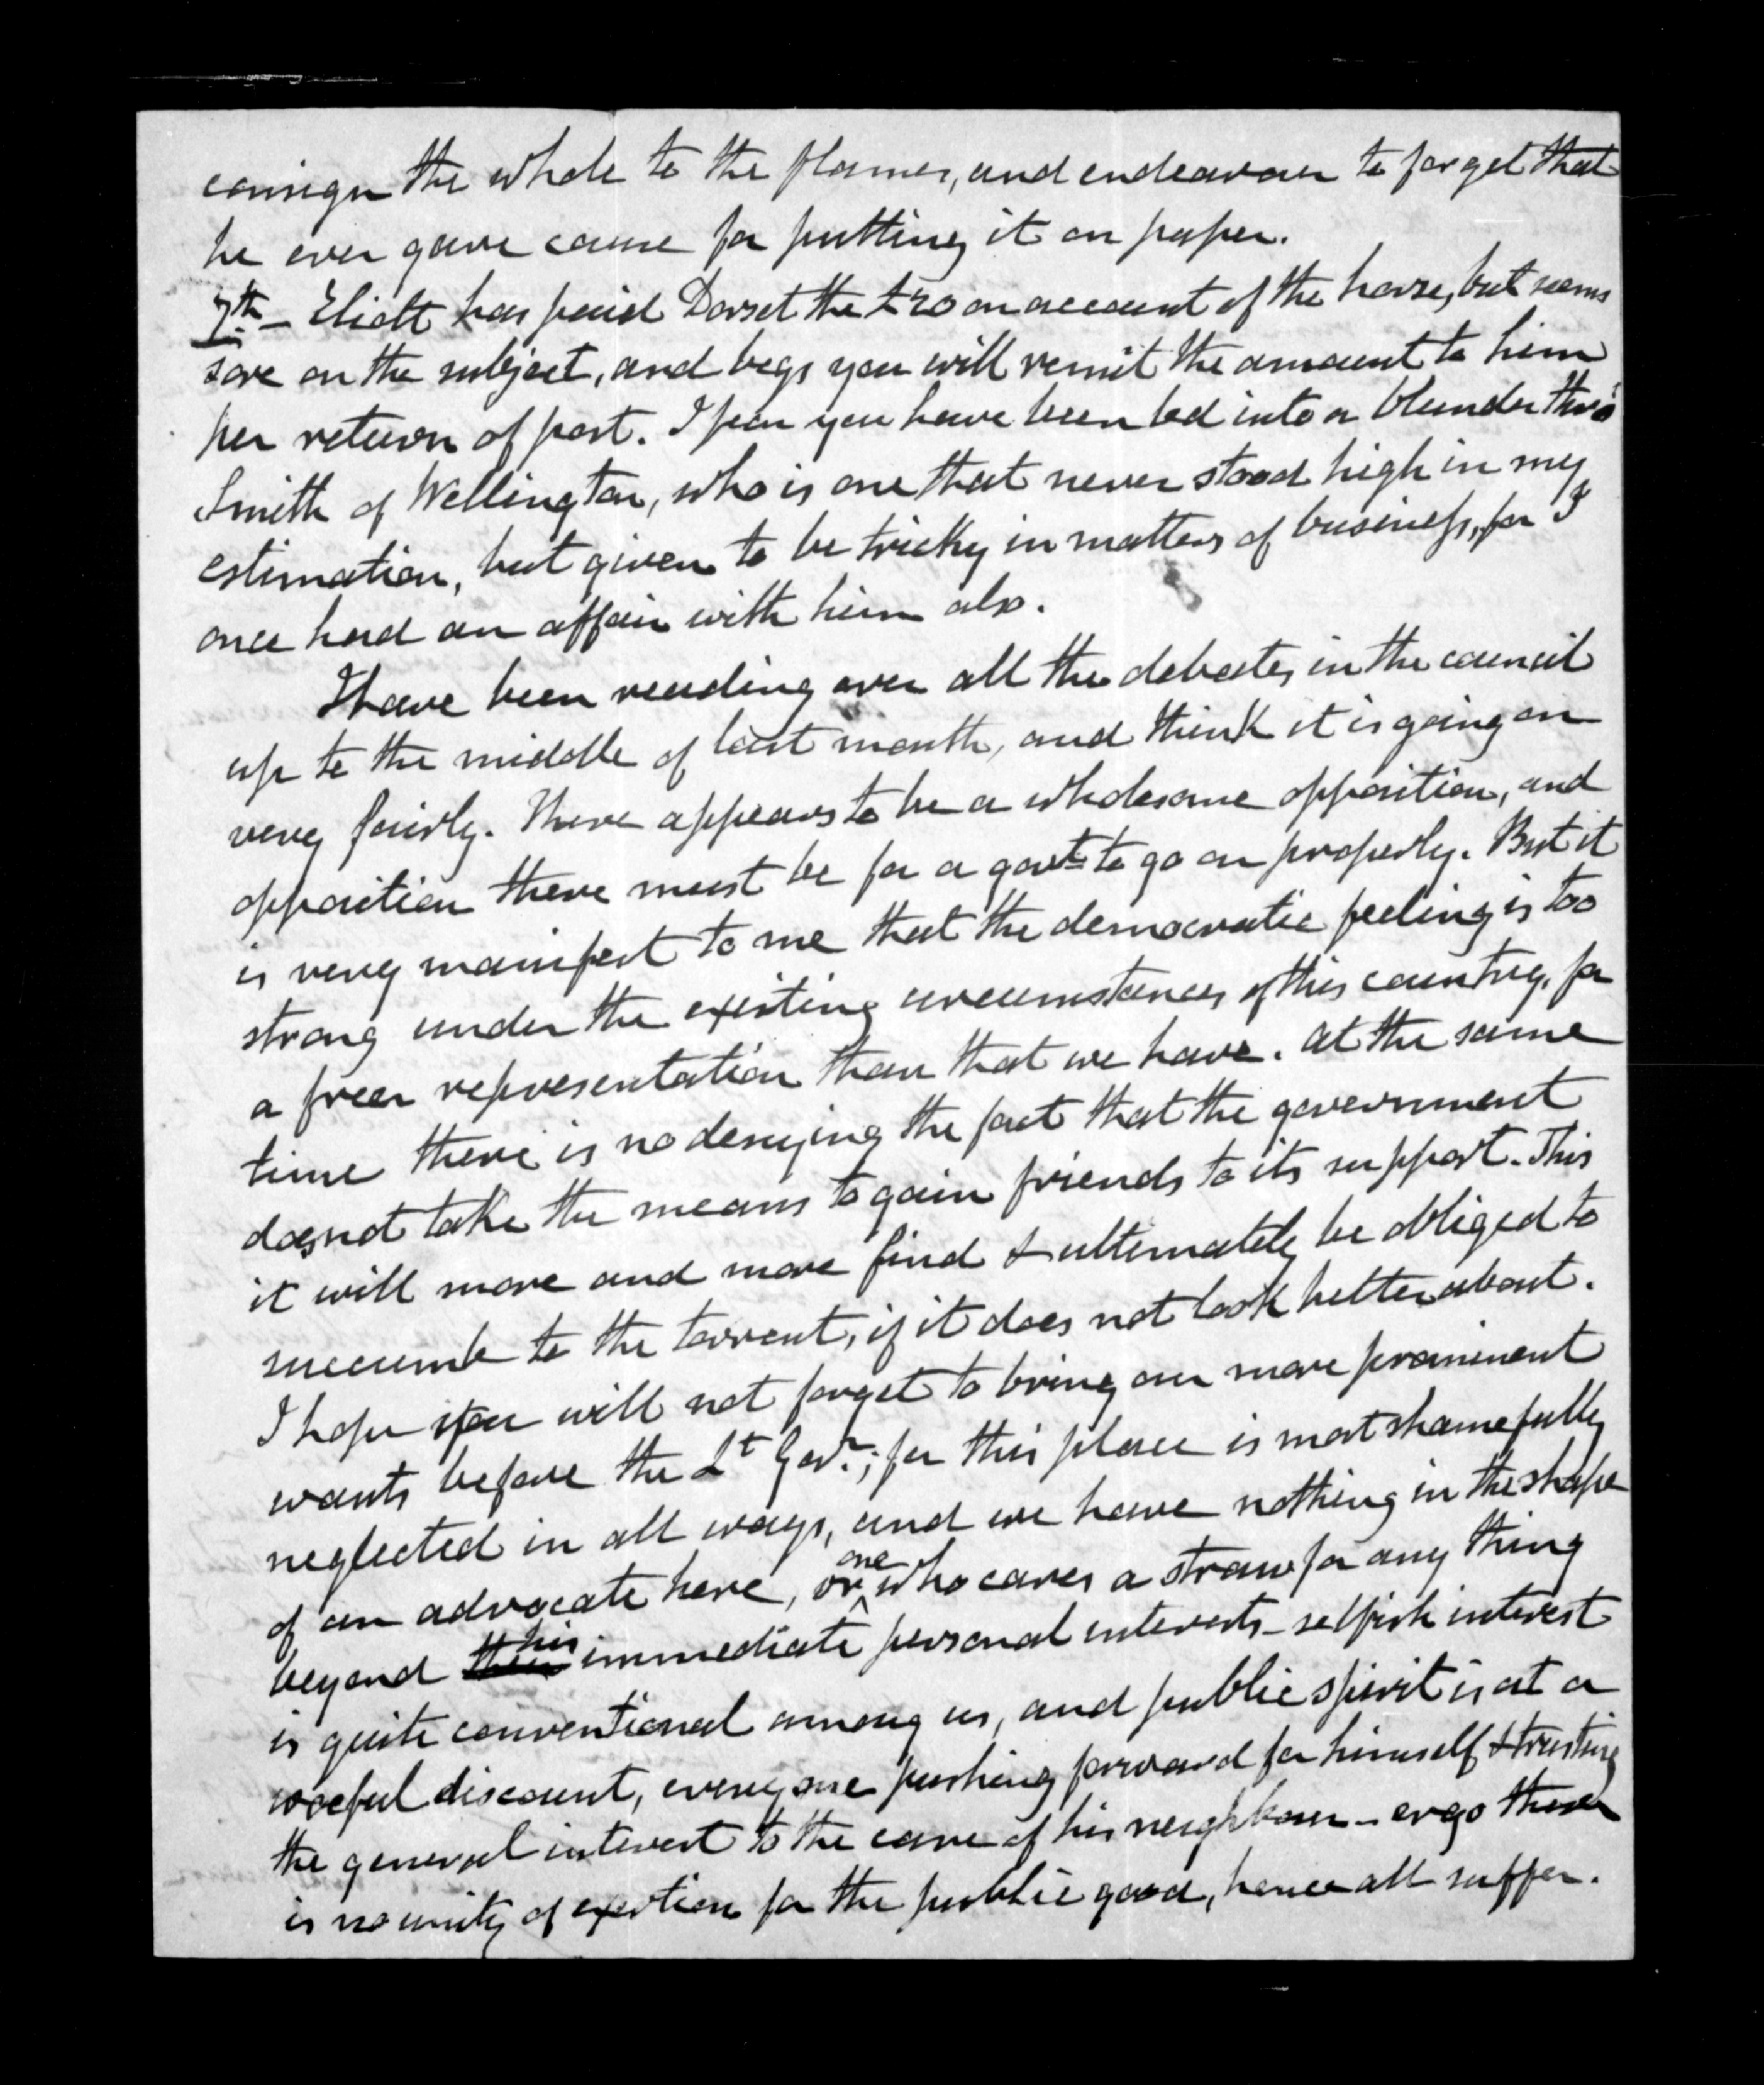 consign the whole to the flames, and endeavour to forget that
he ever gave cause for putting it on paper.
7th - Eliott has paid Dorset the £20 on account of the horse, but seems
sore on the subject, and begs you will remit the amount to him
per return of post. I fear you have been led into a blunder thro'
Smith of Wellington, who is one that never stood high in my
estimation, but given to be tricky in matters of business, for I
once had an affair with him also.
I have been reading over all the debates in the council
up to the middle of last month, and think it is going on
very fairly. There appears to be a wholesome opposition, and
opposition there must be for a govt to go on properly. But it
is very manifest to me that the democratic feeling is too
strong under the existing circumstances of this country, for
a freer representation than that we have. At the same
time there is no denying the fact that the government
does not take the means to gain friends to its support. This
it will more and more find & ultimately be obliged to
succumb to the torrent, if it does not look better about.
I hope you will not forget to bring our more prominent
wants before the Lt Govr.; for this place is most shamefully
neglected in all ways, and we have nothing in the shape
of an advocate here, or one who cares a straw for any thing
beyond their his immediate personal interests - selfish interest
is quite conventional among us, and public spirit is at a
woeful discount, every one pushing forward for himself & trusting
the general interest to the care of his neighbour - ergo there
is no unity of exertion for the public good, hence all suffer.